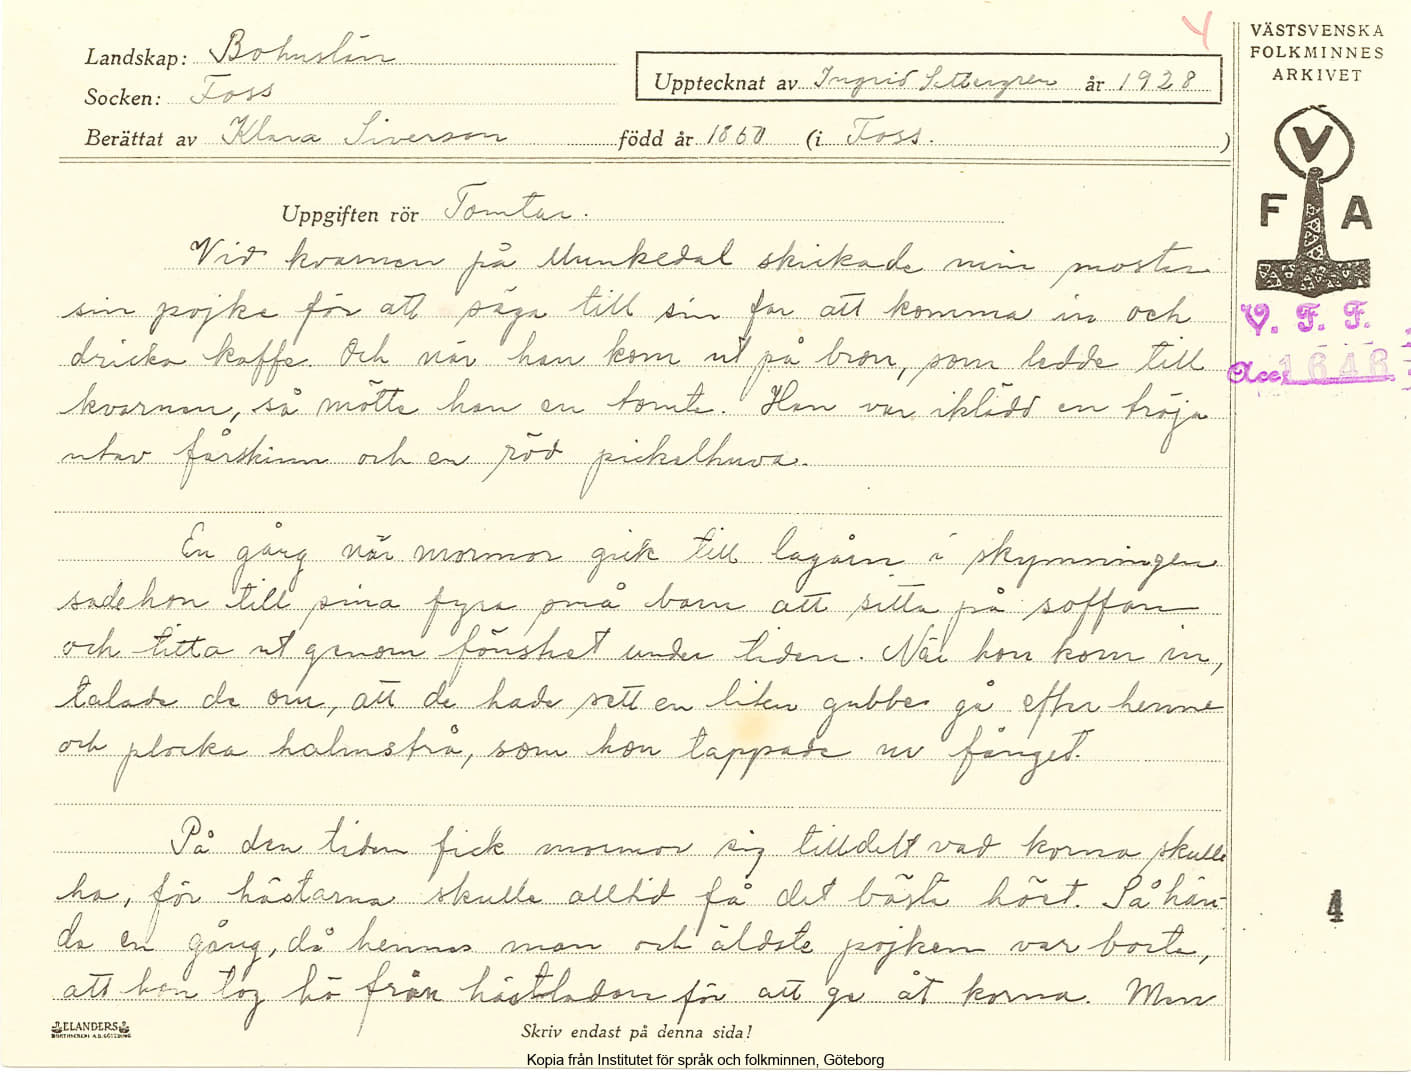 4
VÄSTSVENSKA
FOLKMINNES
ARKIVET
Landskap: Bohuslän
Socken: Foss
Upptecknat av Ingrid Settergren år 1928
Berättat av Klara Siverson född år 1860 (i Foss. )
V
F A
V. F. F.
Acc. 1646
Uppgiften rör Tomtar.
Vid kvarnen på Munkedal skickade min moster
sin pojke för att säga till sin far att komma in och
dricka kaffe. Och när han kom ut på bron, som ledde till
kvarnen, så mötte han en tomte. Han var iklädd en tröja
utav fårskinn och en röd pickelhuva.
En gång när mormor gick till lagårn i skymningen
sade hon till sina fyra små barn att sitta på soffan
och titta ut genom fönstret under tiden. När hon kom in,
talade de om, att de hade sett en liten gubbe gå efter henne
och plocka halmstrå, som hon tappade ur fånget.
På den tiden fick mormor sig tilldelt vad korna skulle
ha, för hästarna skulle alltid få det bästa höet. Så hän-
de en gång, då hennes man och äldste pojken var borta,
att hon tog hö från hästladan för att ge åt korna. Men
4
ELANDERS
Skriv endast på denna sida!
Kopia från Institutet för språk och folkminnen, Göteborg